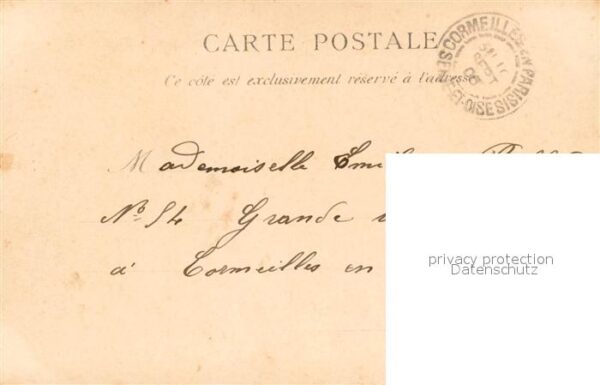 CARTE POSTALE
Ce côté est exclusivement réservé à l'adresse
CORMEILLES-EN-PARISIS
SEINE-ET-OISE
Mademoiselle
No. 54 Grande
à Cormeilles en
privacy protection
Datenschutz